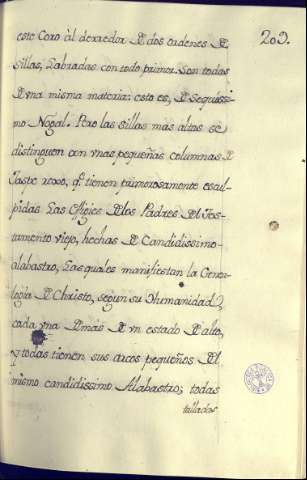 203.
este Coro àl derredor de dos ordenes de
sillas, Labradas con todo primor. Son todas
de vna misma materia: esto es, de sequissi-
mo Nogal. Pero las sillas más altas se
distinguen con vnas pequeñas columnas de
Iaspe roxo, q̃. tienen primorosamente escul-
pidas Las Effigies de los Padres del Tes-
tamento viejo, hechas de Candidissimo
alabastro, Las quales manifiestan la Geneo-
logia de Christo, segun su Humanidad,
cada vna de más de vn estado de alto,
y todas tienen sus arcos pequeños del
mismo candidissimo Alabastro; todas
tallados